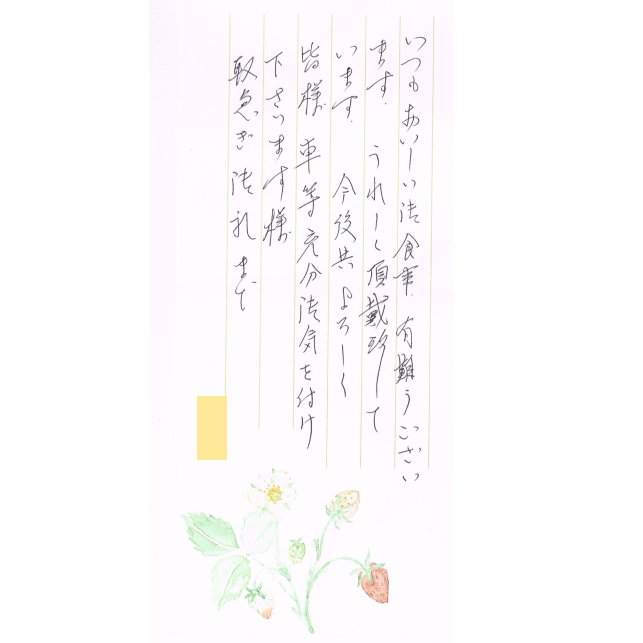 いつもおいしい御食事、有難うござい
ます。うれしく頂戴致して
います。今後共よろしく
皆様車等充分御気を付け
下さいます様
取急ぎ御礼まで